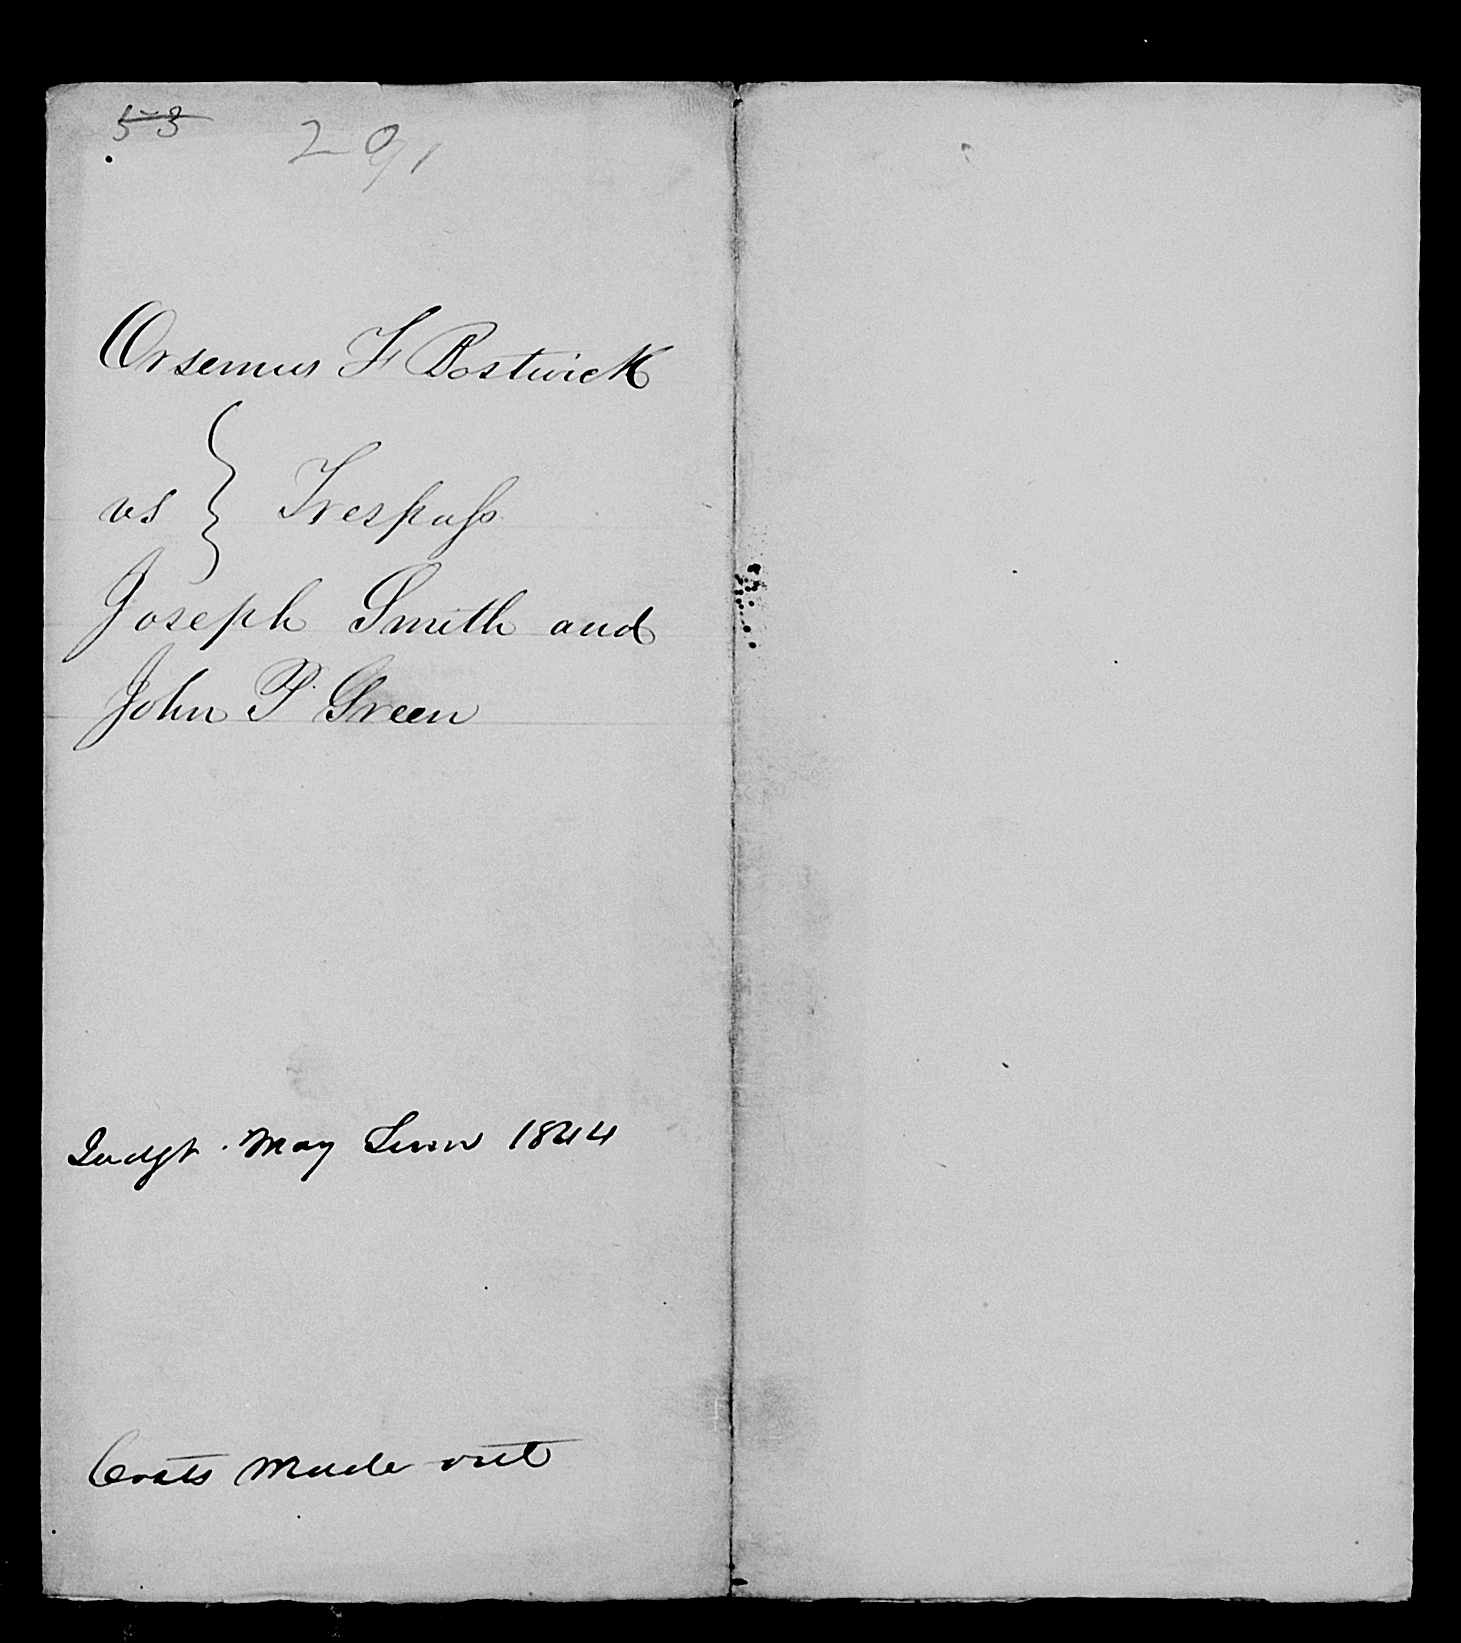 53
291
Orsemus F Bostwick
vs } Trespass
Joseph Smith and
John P. Green
Judgt. May Term 1844
Costs made out